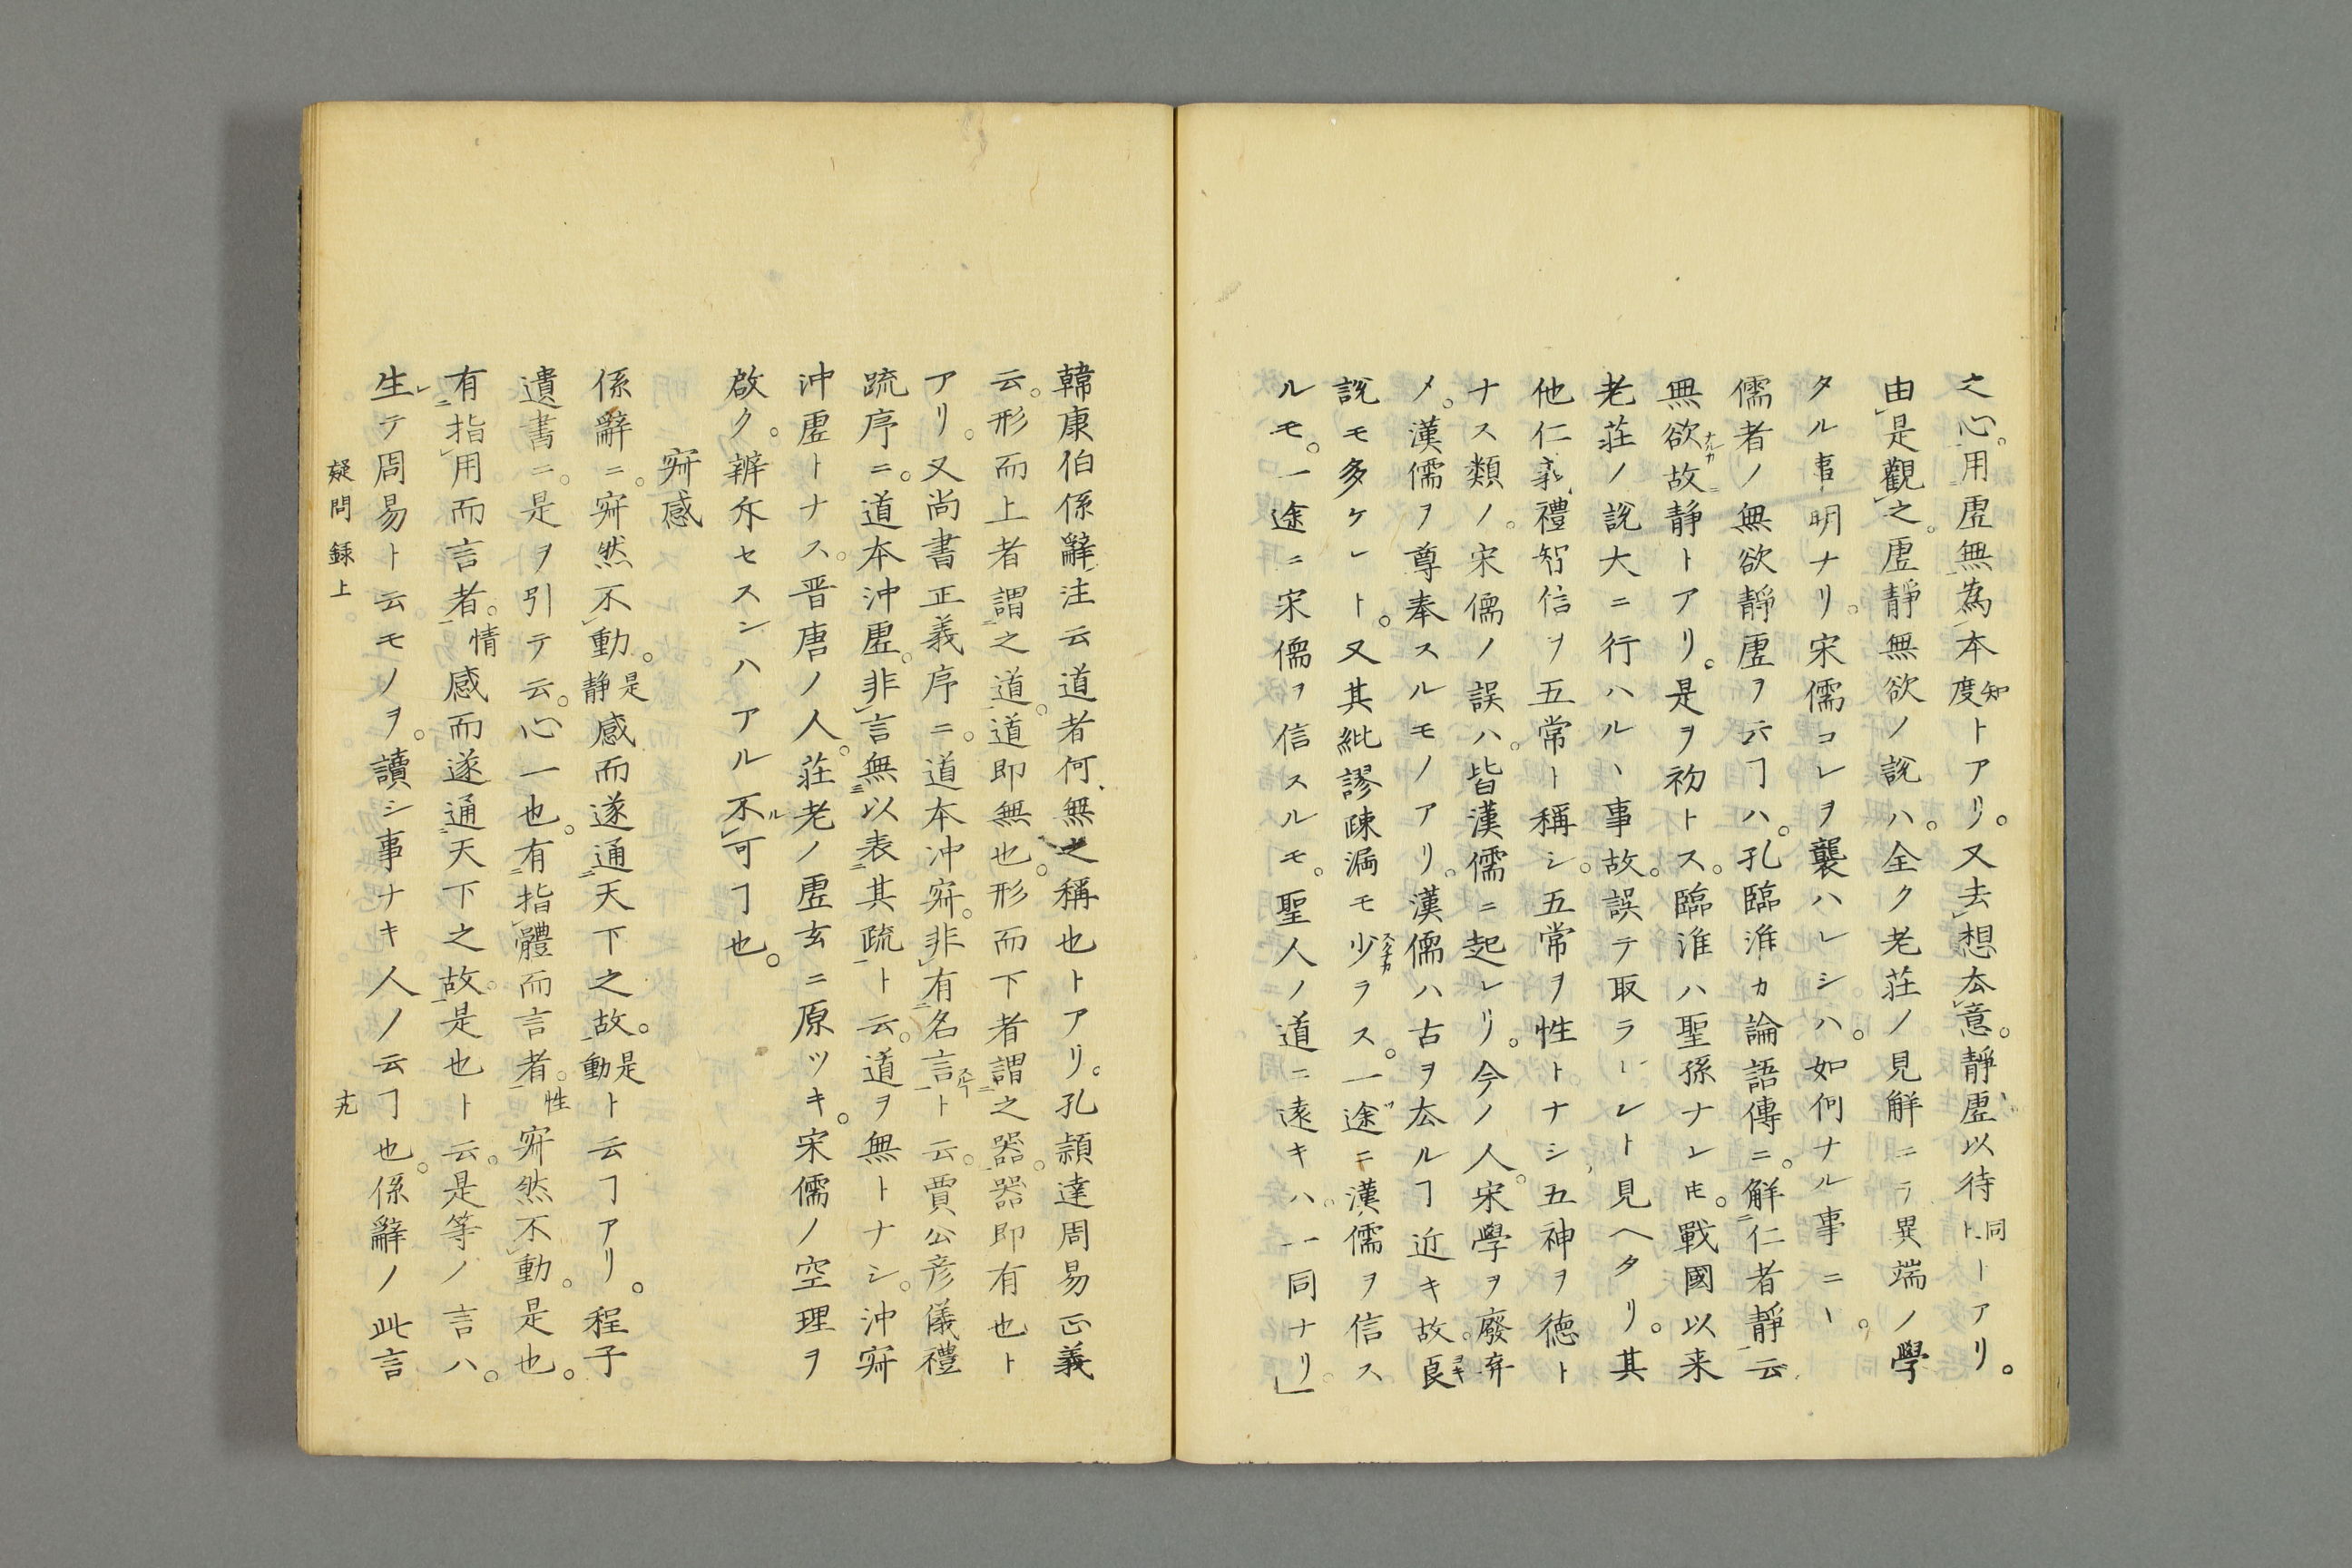 之心。用虚無為本知度トアリ。又去想去意。靜虚以待同上トアリ。
由是觀之。虚靜無欲ノ說ハ。全ク老莊ノ見解ニテ異端ノ學
タル事明ナリ。宋儒コレヲ襲ハレシハ。如何ナル事ニヤ。
儒者ノ無欲靜虚ヲ云ヿハ。孔臨淮カ論語傳ニ。解仁者靜云
無欲故静トアリ。是ヲ初トス。臨淮ハ聖孫ナレ𪜈。戰國以来
老莊ノ說大ニ行ハルヽ事故。誤テ取ラレシト見ヘタリ。其
他仁義禮智信ヲ五常ト稱シ。五常ヲ性トナシ、五神ヲ徳ト
ナス類ノ。宋儒ノ誤ハ。皆漢儒ニ起レリ。今ノ人。宋學ヲ廢弃
メ。漢儒ヲ尊奉スルモノアリ。漢儒ハ古ヲ去ルヿ近キ故。良
說モ多ケレト。又其紕謬疎漏モ少ラス。一途ニ漢儒ヲ信ス
ルモ。一途ニ宋儒ヲ信スルモ。聖人ノ道ニ遠キハ。一同ナリ」
韓康伯係辭注云道者何無之稱也トアリ。孔頴達周易正義
云。形而上者謂之道。道即無也。形而下者謂之器。器即有也ト
アリ。又尚書正義序ニ。道本冲寂。非有名言ト云。賈公彦儀禮
疏序ニ。道本沖虚。非言無以表其疏ト云。道ヲ無トナシ。沖寂
沖虚トナス。晋唐ノ人。莊老ノ虚玄ニ原ツキ。宋儒ノ空理ヲ
啟ク。辨斥セスンハアル不可ヿ也。
寂感
係辭ニ。寂然不動。是静感而遂通天下之故。是動ト云ヿアリ。程子
遺書ニ。是ヲ引テ云。心一也。有指體而言者。性寂然不動。是也。
有指用而言者。情感而遂通天下之故。是也ト云。是等ノ言ハ。
生テ周易ト云モノヲ。讀シ事ナキ人ノ云ヿ也。係辭ノ此言
疑問録上